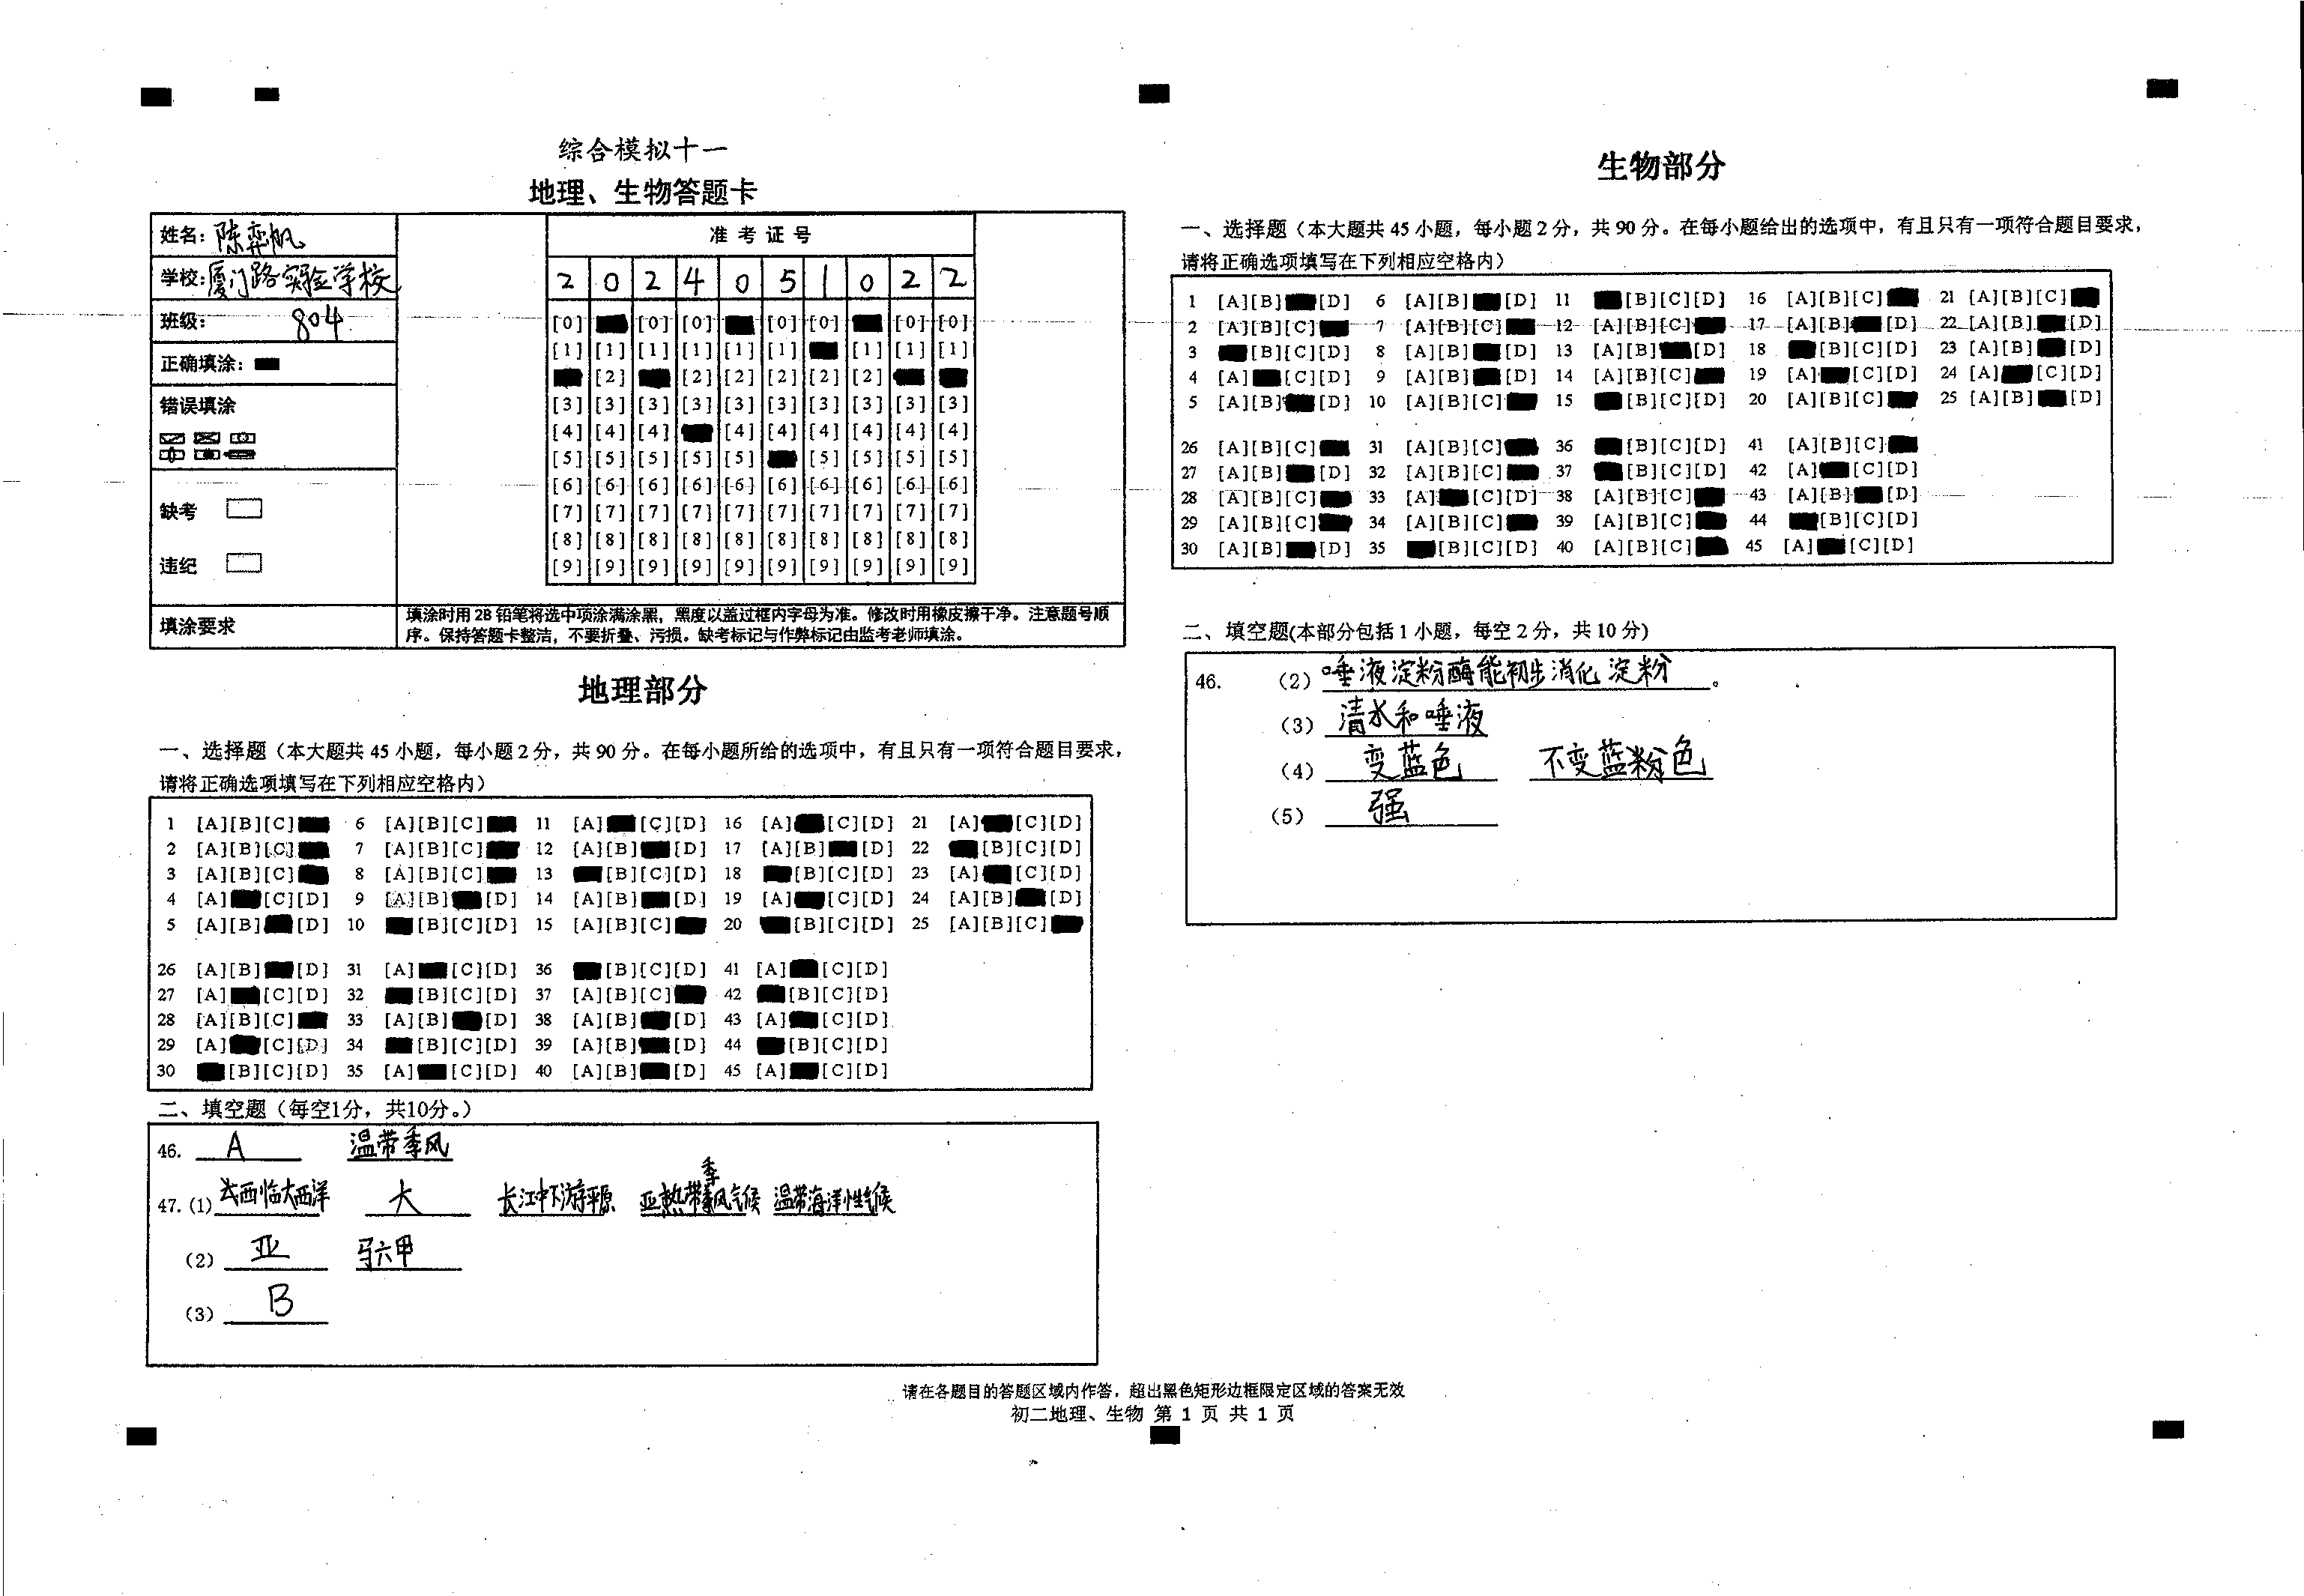 综合模拟十一
地理、生物答题卡
姓名：陈弈帆
学校：厦门路实验学校
班级：804
正确填涂：
错误填涂
缺考
违纪
准考证号
2 0 2 4 0 5 1 0 2 2
[0] [0] [0] [0] [0] [0] [0]
[1] [1] [1] [1] [1] [1] [1] [1] [1]
[2] [2] [2] [2] [2] [2]
[3] [3] [3] [3] [3] [3] [3] [3] [3] [3]
[4] [4] [4] [4] [4] [4] [4] [4] [4]
[5] [5] [5] [5] [5] [5] [5] [5] [5]
[6] [6] [6] [6] [6] [6] [6] [6] [6] [6]
[7] [7] [7] [7] [7] [7] [7] [7] [7] [7]
[8] [8] [8] [8] [8] [8] [8] [8] [8] [8]
[9] [9] [9] [9] [9] [9] [9] [9] [9] [9]
填涂要求
填涂时用 2B 铅笔将选中项涂满涂黑，黑度以盖过框内字母为准。修改时用橡皮擦干净。注意题号顺
序。保持答题卡整洁，不要折叠、污损。缺考标记与作弊标记由监考老师填涂。
地理部分
一、选择题（本大题共 45 小题，每小题 2 分，共 90 分。在每小题所给的选项中，有且只有一项符合题目要求，
请将正确选项填写在下列相应空格内）
1 [A][B][C] 6 [A][B][C] 11 [A] [C][D] 16 [A] [C][D] 21 [A] [C][D]
2 [A][B][C] 7 [A][B][C] 12 [A][B] [D] 17 [A][B] [D] 22 [B][C][D]
3 [A][B][C] 8 [A][B][C] 13 [B][C][D] 18 [B][C][D] 23 [A] [C][D]
4 [A] [C][D] 9 [A][B] [D] 14 [A][B] [D] 19 [A] [C][D] 24 [A][B] [D]
5 [A][B] [D] 10 [B][C][D] 15 [A][B][C] 20 [B][C][D] 25 [A][B][C]
26 [A][B] [D] 31 [A] [C][D] 36 [B][C][D] 41 [A] [C][D]
27 [A] [C][D] 32 [B][C][D] 37 [A][B][C] 42 [B][C][D]
28 [A][B][C] 33 [A][B] [D] 38 [A][B] [D] 43 [A] [C][D]
29 [A] [C][D] 34 [B][C][D] 39 [A][B] [D] 44 [B][C][D]
30 [B][C][D] 35 [A] [C][D] 40 [A][B] [D] 45 [A] [C][D]
二、填空题（每空1分，共10分。）
46. A 温带季风
47. (1) 西临大西洋 大 长江中下游平原 亚热带季风气候 温带海洋性气候
（2） 亚 马六甲
（3） B
生物部分
一、选择题（本大题共 45 小题，每小题 2 分，共 90 分。在每小题给出的选项中，有且只有一项符合题目要求，
请将正确选项填写在下列相应空格内）
1 [A][B] [D] 6 [A][B] [D] 11 [B][C][D] 16 [A][B][C] 21 [A][B][C]
2 [A][B][C] 7 [A][B][C] 12 [A][B][C] 17 [A][B] [D] 22 [A][B] [D]
3 [B][C][D] 8 [A][B] [D] 13 [A][B] [D] 18 [B][C][D] 23 [A][B] [D]
4 [A] [C][D] 9 [A][B] [D] 14 [A][B][C] 19 [A] [C][D] 24 [A] [C][D]
5 [A][B] [D] 10 [A][B][C] 15 [B][C][D] 20 [A][B][C] 25 [A][B] [D]
26 [A][B][C] 31 [A][B][C] 36 [B][C][D] 41 [A][B][C]
27 [A][B] [D] 32 [A][B][C] 37 [B][C][D] 42 [A] [C][D]
28 [A][B][C] 33 [A] [C][D] 38 [A][B][C] 43 [A][B] [D]
29 [A][B][C] 34 [A][B][C] 39 [A][B][C] 44 [B][C][D]
30 [A][B] [D] 35 [B][C][D] 40 [A][B][C] 45 [A] [C][D]
二、填空题(本部分包括 1 小题，每空 2 分，共 10 分)
46. （2）唾液淀粉酶能初步消化淀粉。
（3）清水和唾液
（4） 变蓝色 不变蓝色
（5） 强
请在各题目的答题区域内作答，超出黑色矩形边框限定区域的答案无效
初二地理、生物 第 1 页 共 1 页